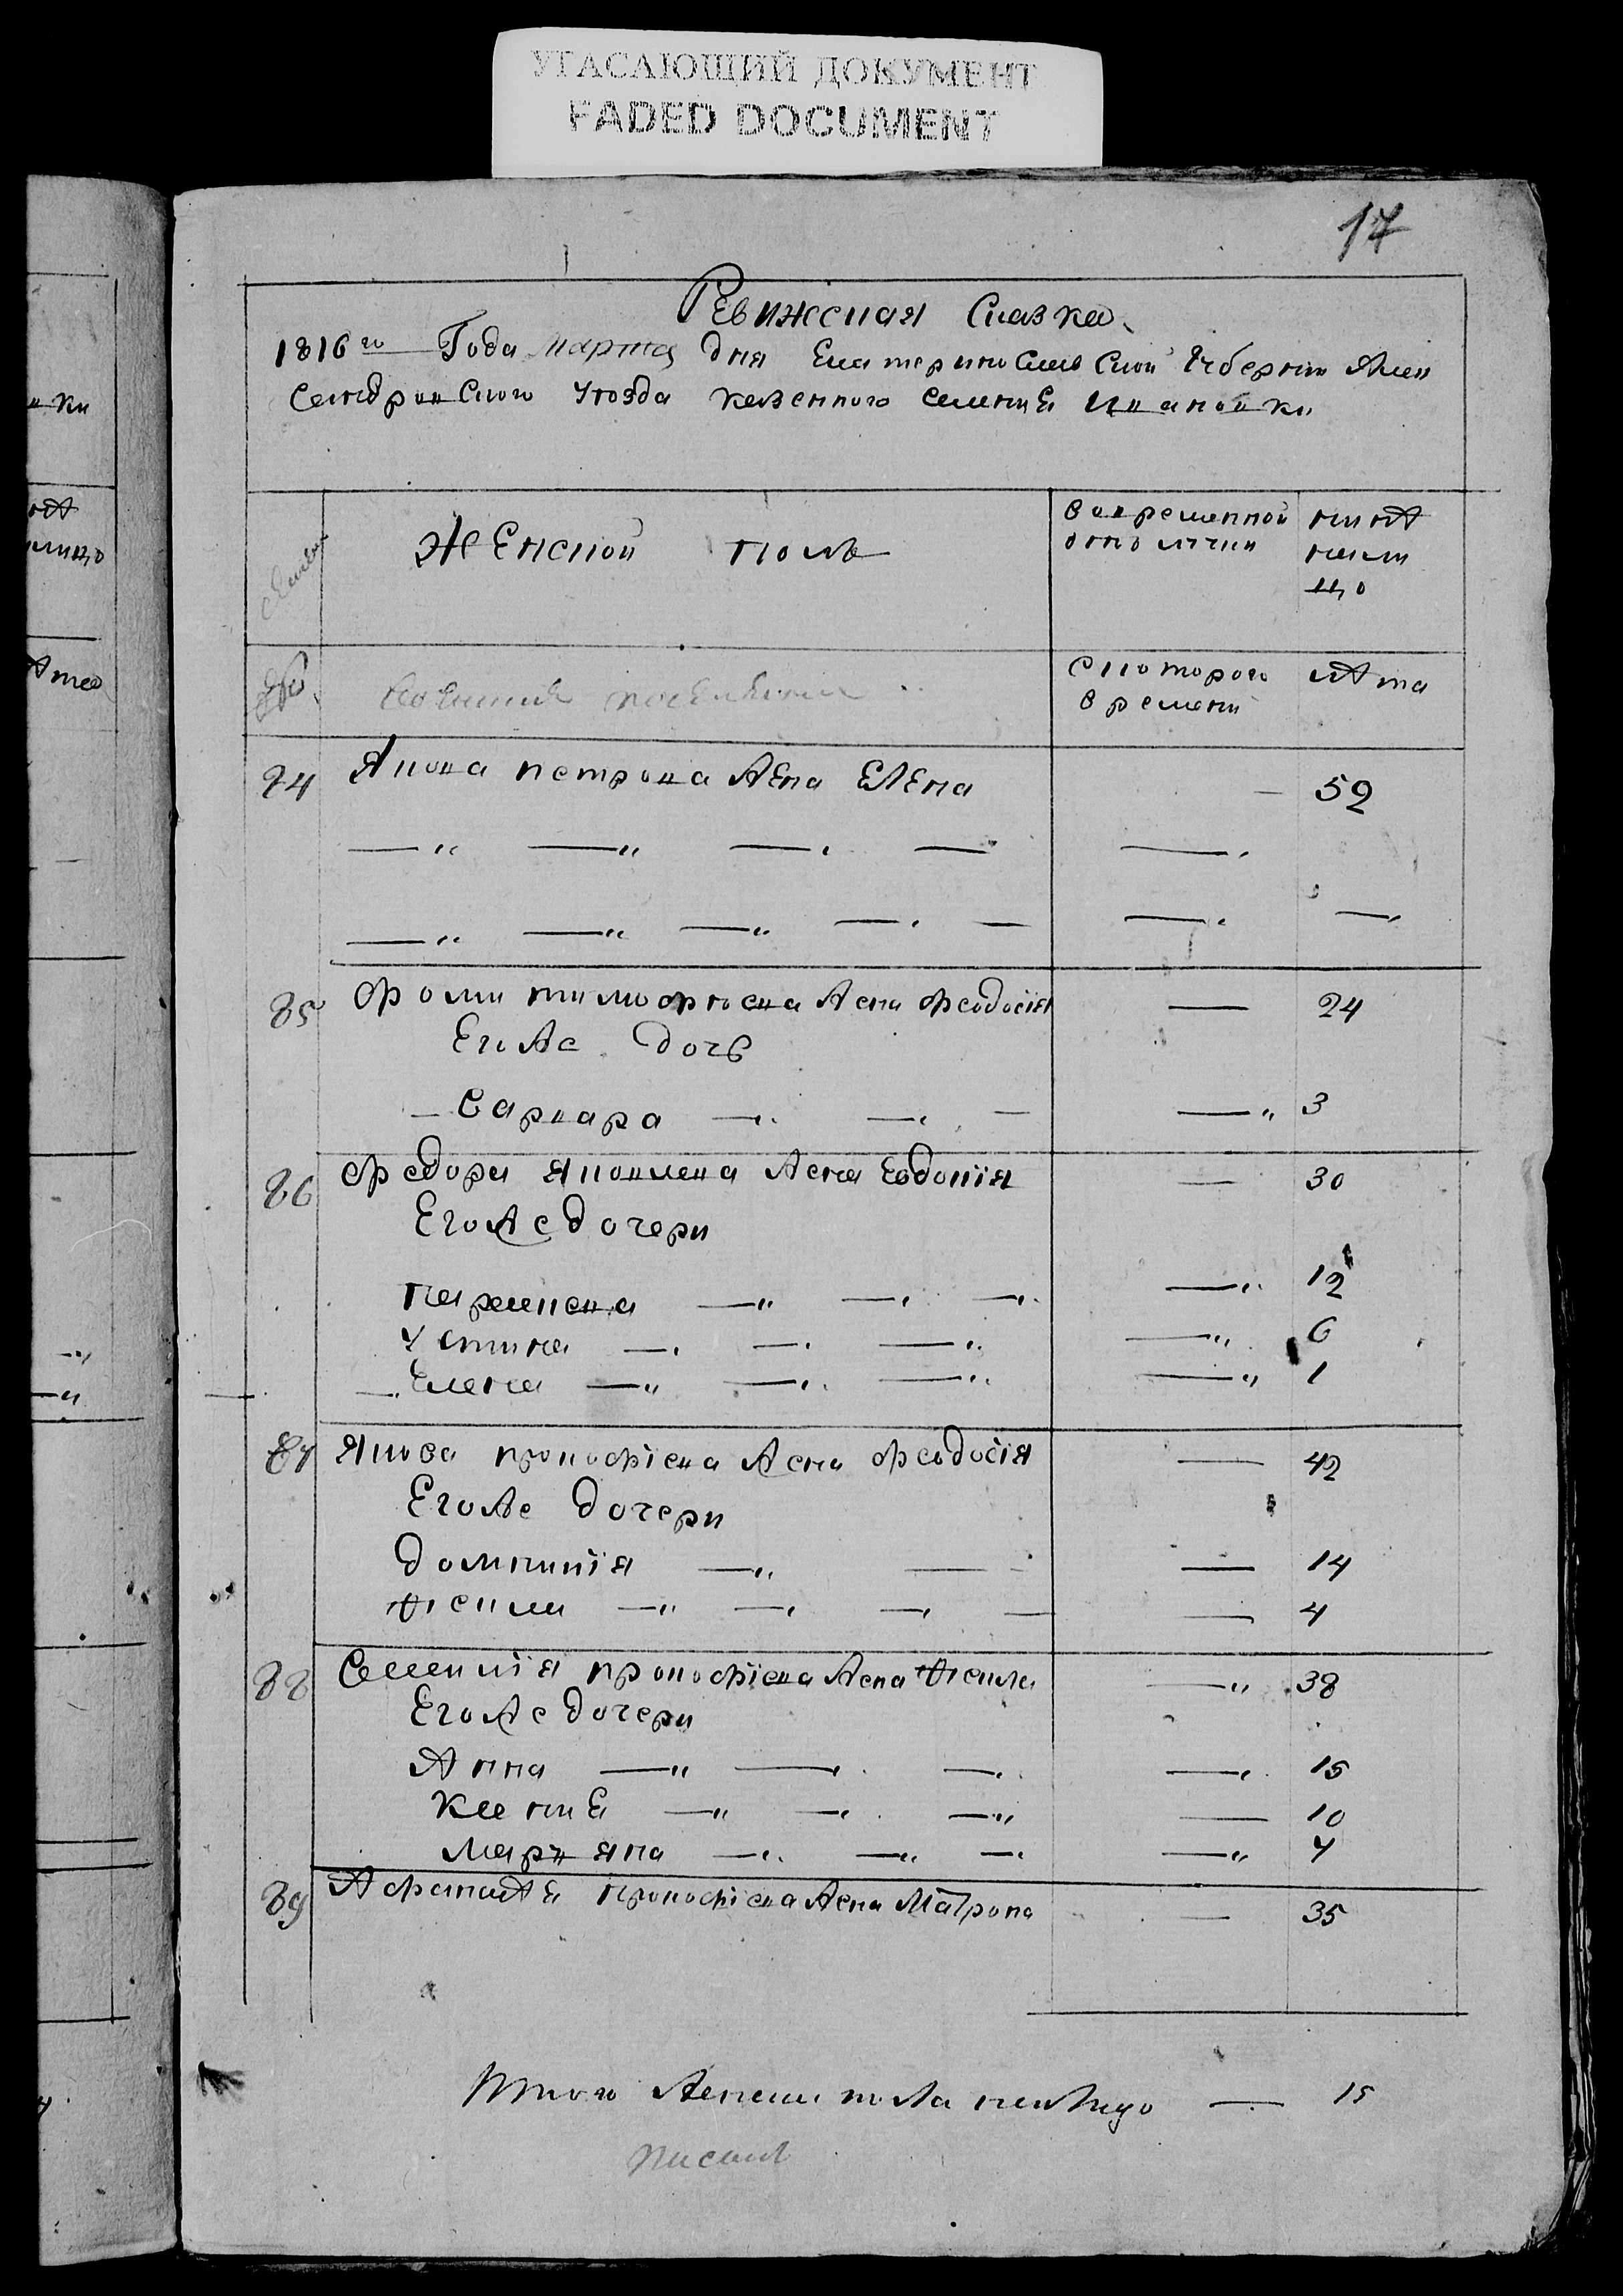 УГАСАЮЩИЙ ДОКУМЕНТ
FADED DOCUMENT
17
Ревижская Сказка
1816го Года марта дня Екатеринославской губернии Алек
сандровского уезда казенного селения Ивановки
женской пол
во временной отлучки
ныне налицо
с которого времени
лета
84 Якова петрова жена Елена 52
85 фомы тимофеева жена феодосiя 24
Его же дочь
Варвара 3
86 федора яковлева жена Евдокiя 30
Его же дочери
параскева 12
устина 6
Елена 1
87 Якова прокофiева жена феодосiя 42
Его же дочери
домникiя 14
фекла 4
88 Савелiя прокофiева жена фекла 38
Его же дочери
Анна 15
10
марьяна 4
89 прокофiева жена Матрона 35
Итого женска пола налицо 15